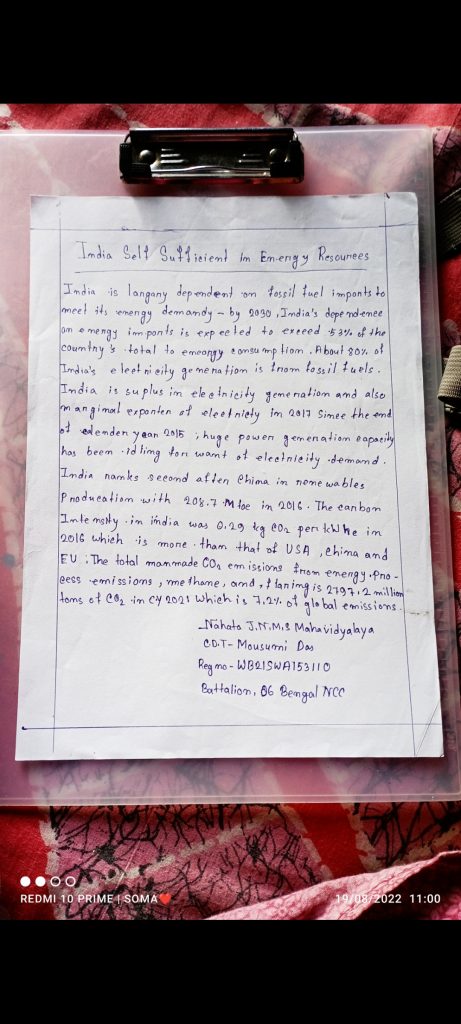 India Self Sufficient In Energy Resources
India is langany dependent on fossil fuel imports to
meet its energy demandy - by 2030, India's dependence
on energy imports is expected to exceed 53% of the
country's total to eneorgy consumption. About 80% of
India's electricity generation is from fossil fuels.
India is suplus in electricity generation and also
marginal exporter of electricty in 2017 Since the end
of calender year 2015, huge power generation capacity
has been idling for want of electricity demand.
India ranks second after China in renewables
Producation with 208.7 Mtoe in 2016. The carbon
Intensity in india was 0.29 kg CO2 per kWhe in
2016 which is more than that of USA, China and
EU. The total manmade CO2 emissions from energy, Pro-
cess emissions, methane, and, flaring is 2797.2 million
tons of CO2 in CY 2021 which is 7.2% of global emissions.
Nahata J.N.M.S Mahavidyalaya
CDT- Mousumi Das
Reg no- WB21SWA153110
Battalion, 06 Bengal NCC
REDMI 10 PRIME | SOMA❤
19/08/2022 11:00